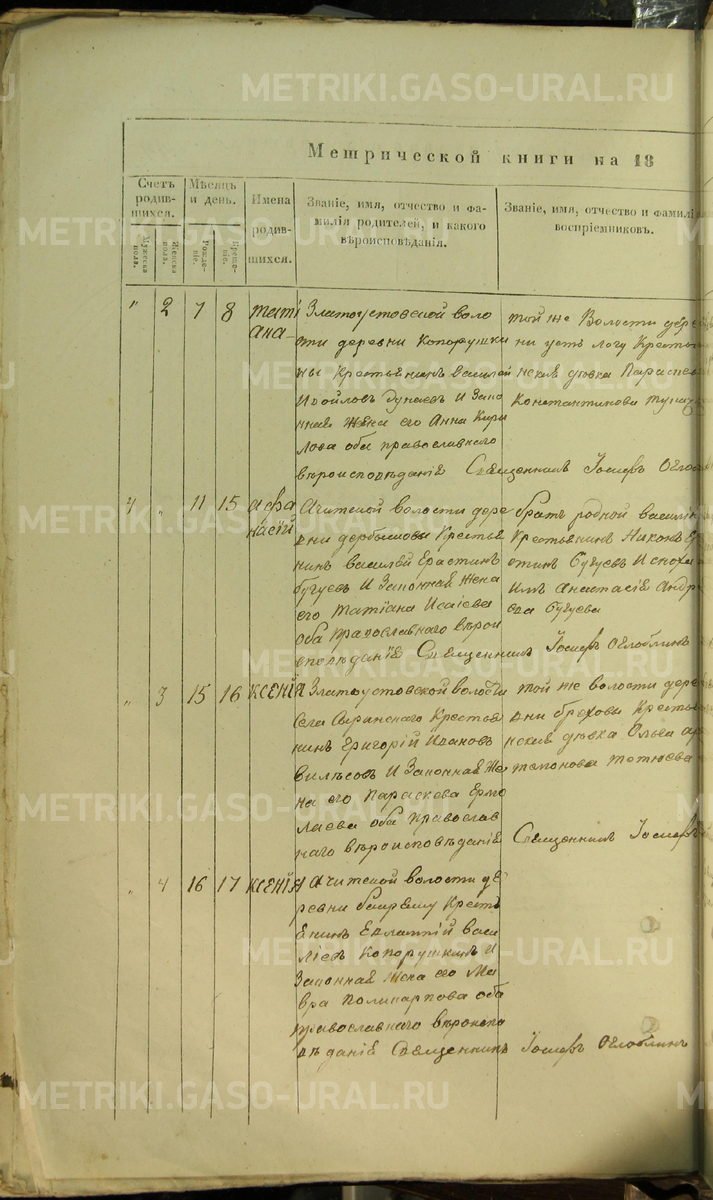 METRIKI.GASO-URAL.RU
Метрической книги на 18
Счетъ родив-шихся.
Мужеска пола.
Женска пола.
Мѣсяцъ и день.
Рожде-нія.
Креще-нія.
Имена родив-шихся.
Званіе, имя, отчество и фа-
милія родителей, и какого
вѣроисповѣданія.
Званіе, имя, отчество и фамилі
воспріемниковъ.
" 2 7 8 Тати
ана
Златоустовской воло
сти деревни Копорушки
ны Крестьянинъ Василей
Дунаевъ И Зако
нная Жена его Анна Кири
лова оба православнаго
вѣроисповѣданія Священникъ Іосифъ Огло
той же Волости дере
вни усть логу Кресть
нская дѣвка Параске
Константинова
4 " 11 15 Афа
насій
Ачитской волости дере
вни дербышовы Кресть
нинъ Василей Ерастинъ
бугуевъ И Законная Жена
его Татіана Исаіева
оба Православнаго вѣрои
сповѣданія Священникъ Іосифъ Оглоблинъ
братъ родной василія
Крестьянинъ Никонъ
бугуевъ И сноха
имъ Анастасія Андр
ева бугуева
" 3 15 16 Ксенія
Златоустовской волости
села Крестья
нинъ Григорій Ивановъ
И Законная Же
на его Параскева Ермо
лаева оба Православ
наго вѣроисповѣданія Священникъ Іосифъ
той же волости дере
вни бреховы Кресть
нская дѣвка Ольга ар
тамонова
" 4 16 17 Ксенія
Ачитской волости де
ревни Кресть
янинъ Евлампій Васи
лиевъ Копорушкинъ И
Законная Жена его Ма
вра Поликарпова оба
Православнаго вѣроиспо
вѣданія Священникъ Іосифъ Оглоблинъ